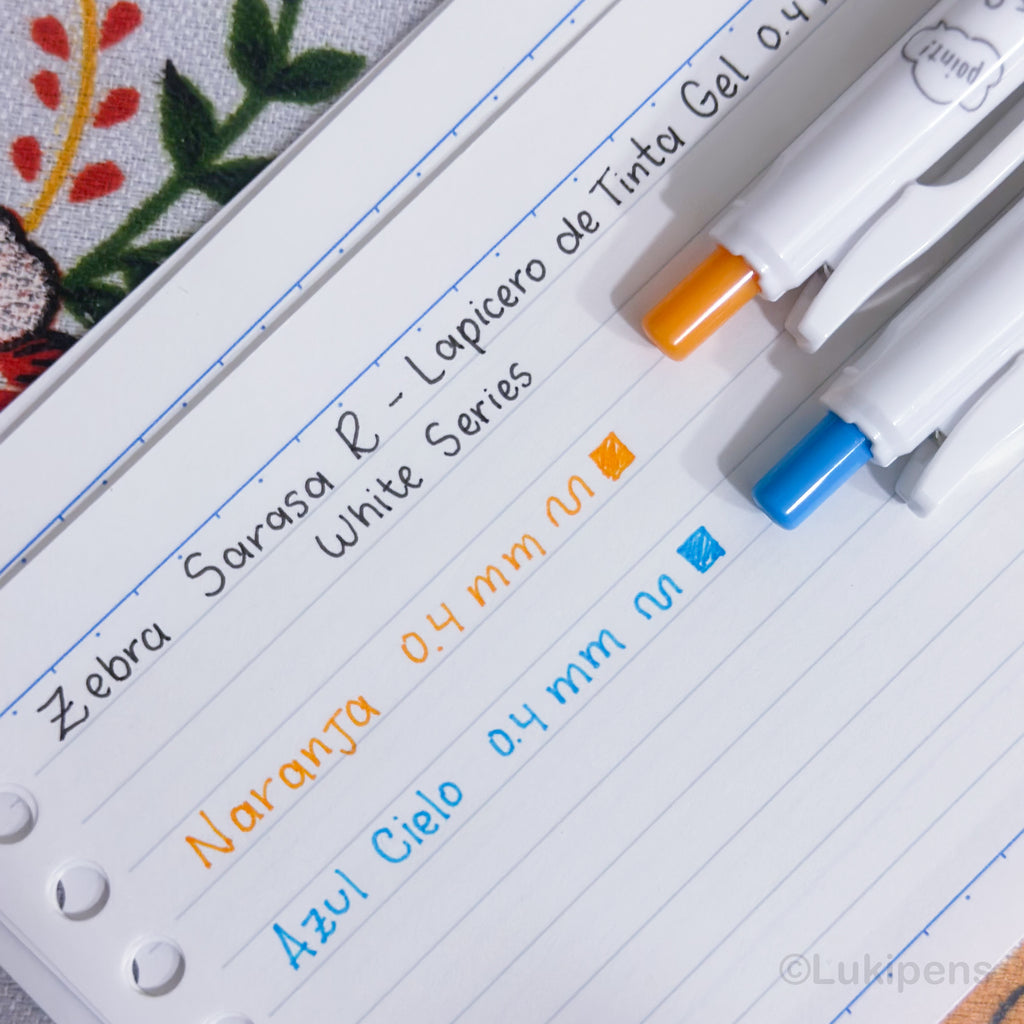 Zebra Sarasa R - Lapicero de Tinta Gel 0.4
White Series
Naranja 0.4 mm
Azul Cielo 0.4 mm
point!
©Lukipens